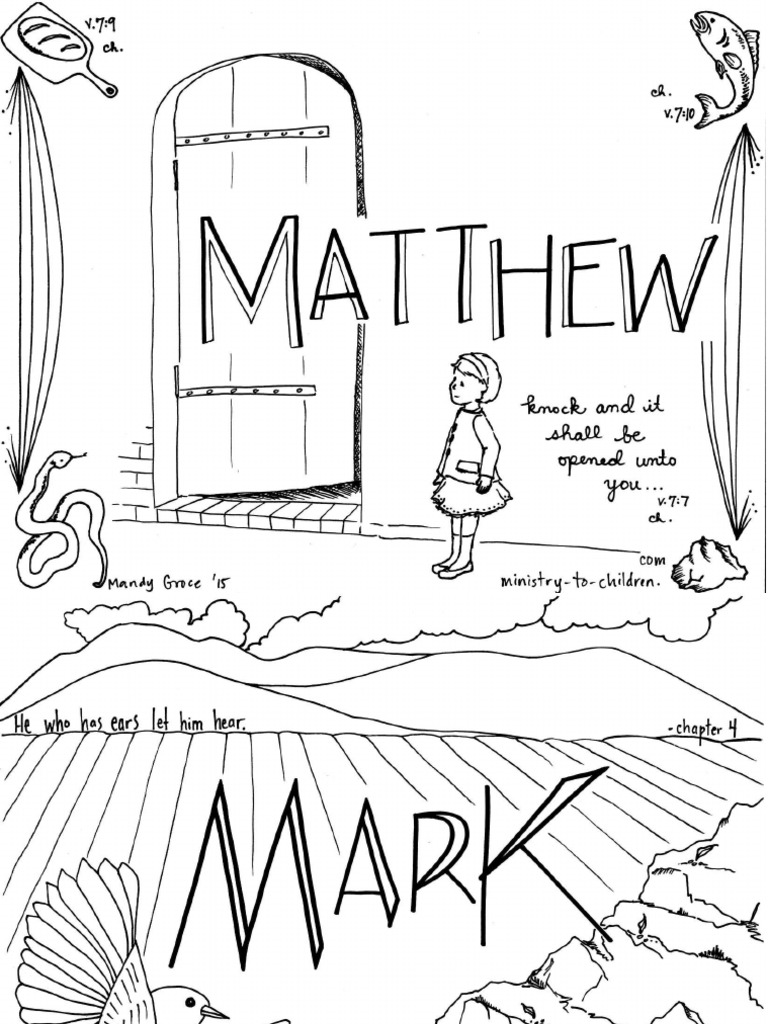 v.7:9
ch.
ch.
v.7:10
MATTHEW
knock and it
shall be
opened unto
you...
v.7:7
ch.
Mandy Groce '15
com
ministry-to-children.
He who has ears let him hear.
-chapter 4
MARK